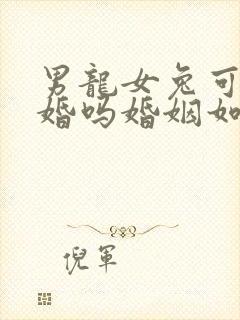 男龍女兔可
婚吗婚姻如
倪軍